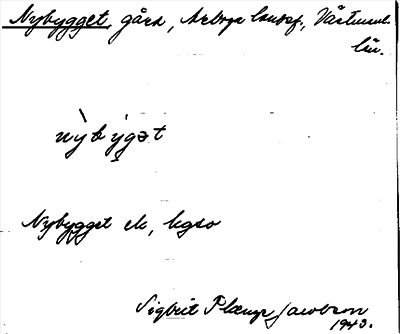 Nybygget, gård, Arboga landsf., Västmanl.
län.
nỳbýgət
Nybygget ek, hgdo
Sigbrit Plænge Jacobson
1943.